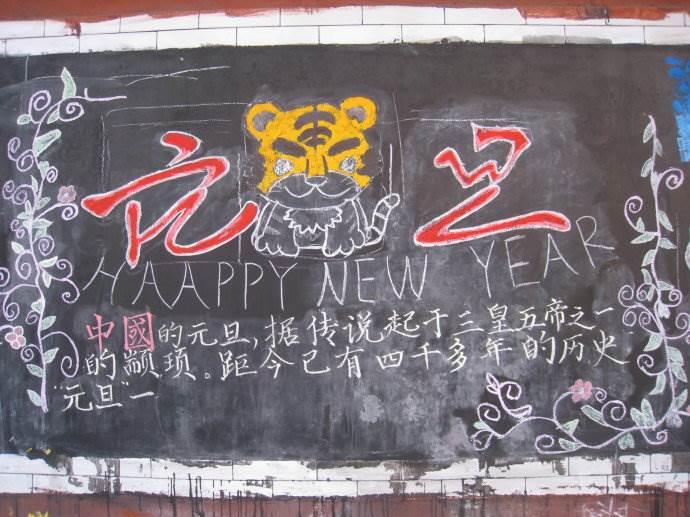 元旦
HAAPPY NEW YEAR
中國的元旦,据传说起于三皇五帝之一
的颛顼。距今已有四千多年的历史
"元旦"一